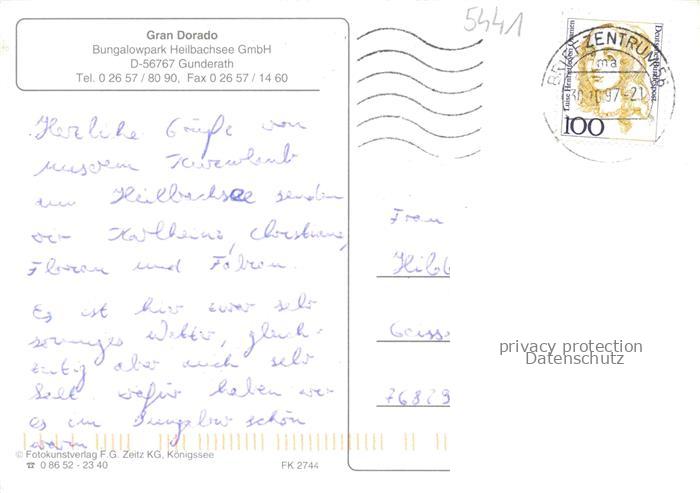 5441
Gran Dorado
Bungalowpark Heilbachsee GmbH
D-56767 Gunderath
Tel. 0 26 57 / 80 90, Fax 0 26 57 / 14 60
Herzliche Grüße von
unserem Kurzurlaub
am Heilbachsee senden
wir Karlheinz, Christiane,
Florian und Fabian.
Es ist hier zwar sehr
sonniges Wetter, gleich-
zeitig aber auch sehr
kalt. Dafür haben wir
es im Bungalow schön
warm.
© Fotokunstverlag F.G. Zeitz KG, Königssee
☎ 0 86 52 - 23 40
FK 2744
BRIEFZENTRUM 56
ma
97-21
Luise Henriette von Oranien
Deutsche Bundespost
100
Frau
Hild
Geiss
76829
privacy protection
Datenschutz